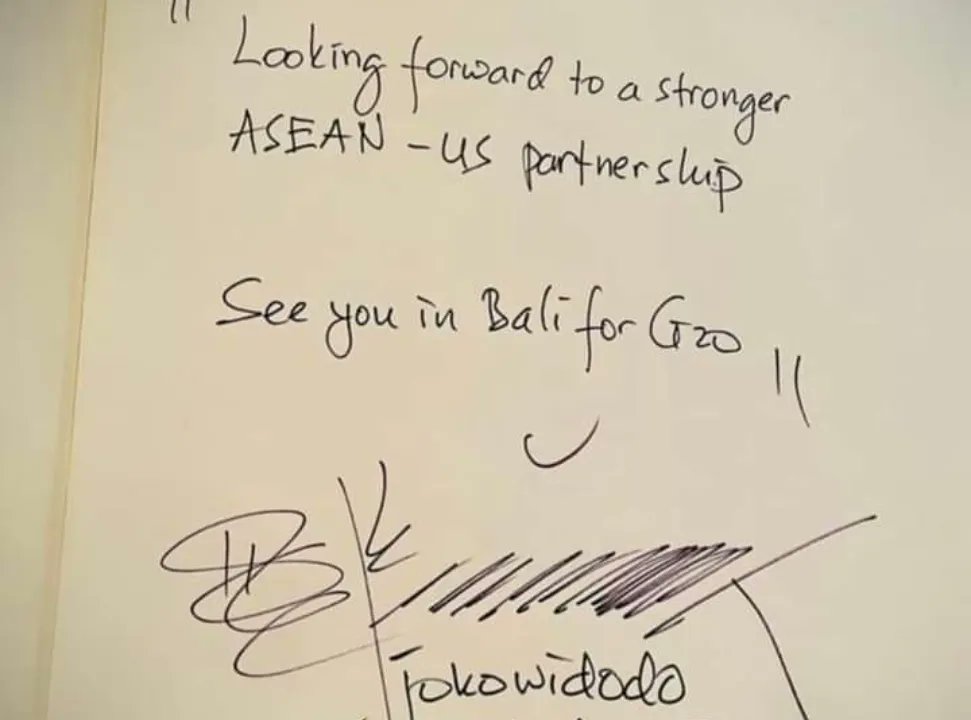 "
Looking forward to a stronger
ASEAN - US partnership
See you in Bali for G20 "
jokowidodo